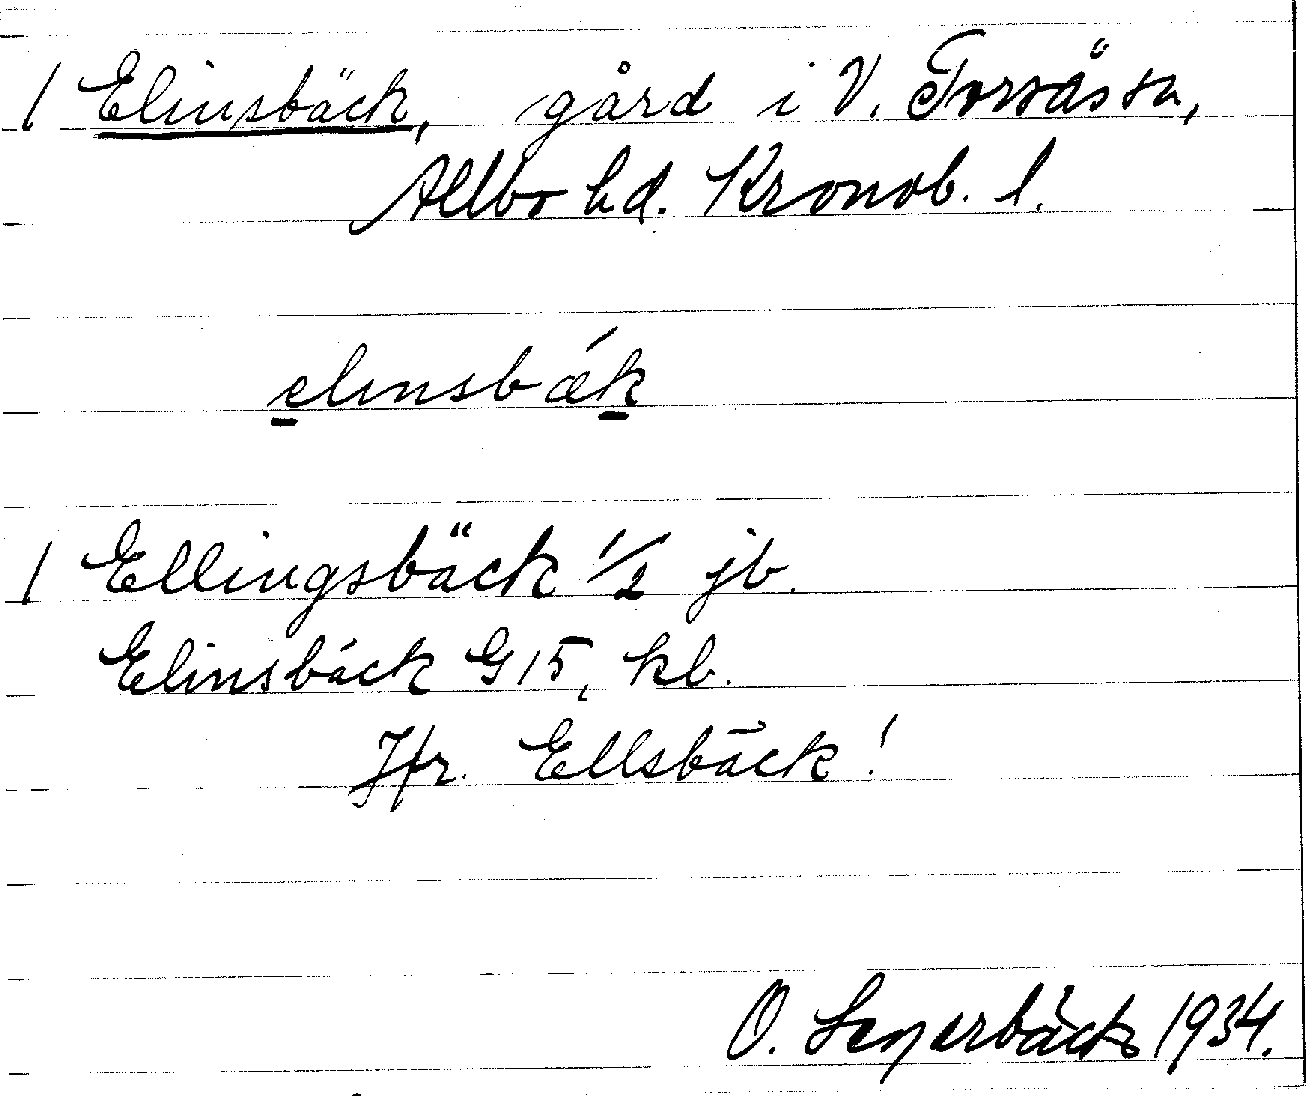 / Elinsbäck, gård i V. Torsås sn,
Allbo hd. Kronob. l.
elinsbæ´k
/ Ellingsbäck 1/2 jb.
Elinsbäck G 15, kb.
Jfr. Ellsbäck!
O. 1934.